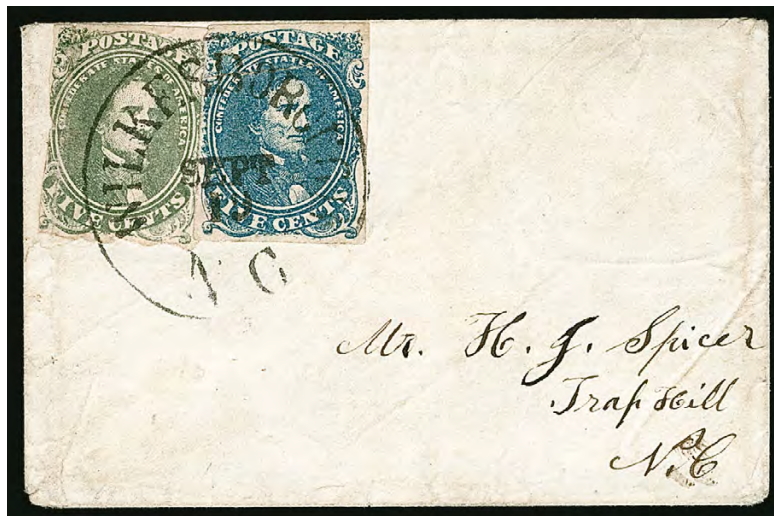 POSTAGE
CONFEDERATE STATES OF AMERICA
FIVE CENTS
POSTAGE
CONFEDERATE STATES OF AMERICA
FIVE CENTS
SEPT
19
N C
Mr. H. J. Spicer
Trap Hill
N.C